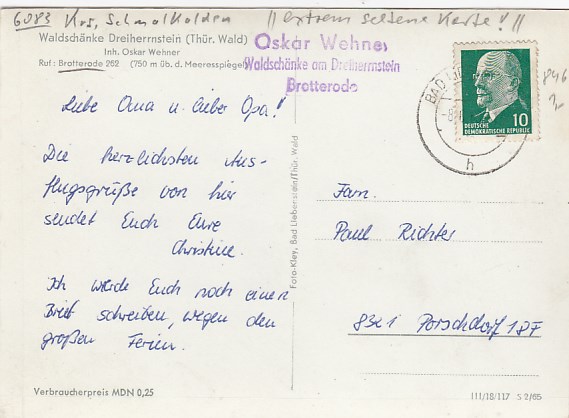 6083 Krs. Schmalkalden || extrem seltene Karte! ||
Waldschänke Dreiherrnstein (Thür. Wald)
Inh. Oskar Wehner
Ruf: Brotterode 262 (750 m üb. d. Meeresspiegel)
Oskar Wehner
Waldschänke am Dreiherrnstein
Brotterode
BAD
-8
h
10
DEUTSCHE
DEMOKRATISCHE REPUBLIK
846
Liebe Oma u. lieber Opa!
Die herzlichsten Aus-
flugsgrüße von hier
sendet Euch Eure
Christine.
Ich werde Euch noch einen
Brief schreiben, wegen den
großen Ferien.
Foto-Kley, Bad Liebenstein/Thür. Wald
Fam.
Paul Richter
8321 Porschdorf 18F
Verbraucherpreis MDN 0,25
III/18/117 S 2/65